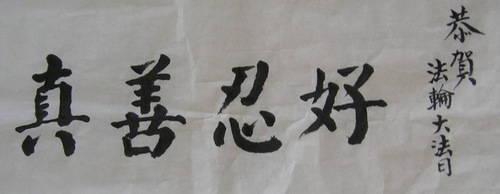 恭賀
法輪大法日
真善忍好